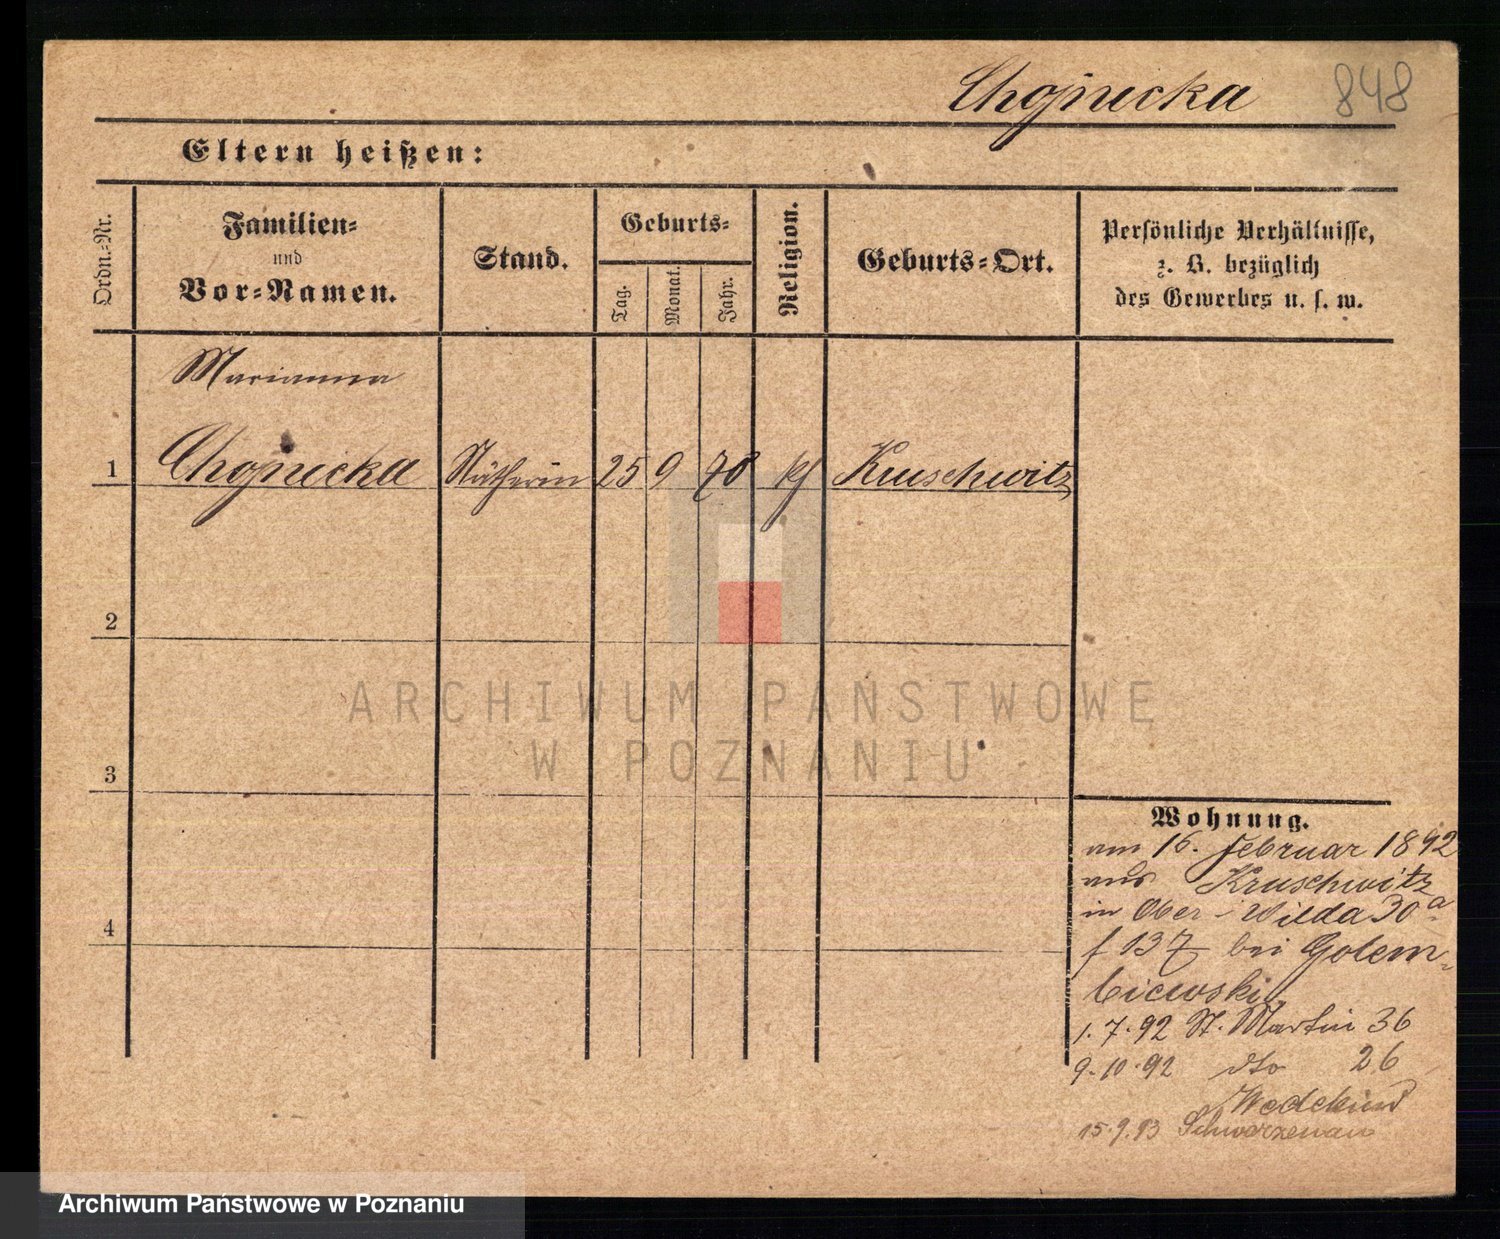 Chojnecka 848
Eltern heißen:
Ordn.-Nr.
Familien-
und
Vor-Namen.
Stand.
Geburts-
Tag.
Monat.
Jahr.
Religion.
Geburts-Ort.
Persönliche Verhältnisse,
z. B. bezüglich
des Gewerbes u. s. w.
Marianna
1 Chojnecka Nätherin 25 9 70 kf Kruschwitz
2
3
4
Wohnung.
am 16. Februar 1892
aus Kruschwitz
in Ober-Wilda 30a
f 137 bei Golem-
biewski
1.7.92 St. Martin 36
9.10.92 dto 26
Wedekind
15.9.93 Schwarzenau
ARCHIWUM PAŃSTWOWE
W POZNANIU
Archiwum Państwowe w Poznaniu